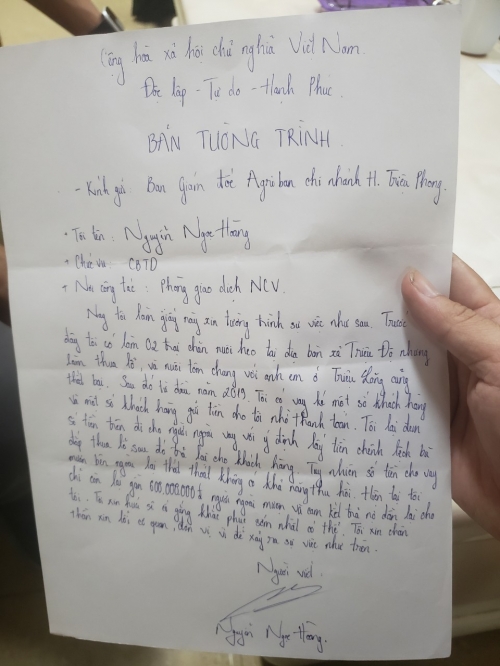 Cộng hòa xã hội chủ nghĩa Việt Nam.
Độc lập - Tự do - Hạnh Phúc.
BẢN TƯỜNG TRÌNH
- Kính gửi Ban Giám đốc Agriban chi nhánh H. Triệu Phong.
• Tôi tên : Nguyễn Ngọc Hoàng
+ Chức vụ : CBTD
+ Nơi công tác : Phòng giao dịch NCV.
Nay tôi làm giấy này xin tường trình sự việc như sau. Trước
đây tôi có làm 02 trại chăn nuôi heo tại địa bàn xã Triệu Độ nhưng
làm thua lỗ, và nuôi tôm chung với anh em ở Triệu Lăng cũng
thất bại. Sau đó từ đầu năm 2019. Tôi có vay ké một số khách hàng
và một số khách hàng gửi tiền cho tôi nhờ thanh toán. Tôi lại đem
số tiền trên đi cho người ngoài vay với ý định lấy tiền chênh lệch bù
đắp thua lỗ sau đó trả lại cho khách hàng. Tuy nhiên số tiền cho vay
mượn bên ngoài lại thất thoát không có khả năng thu hồi. Hiện tại tôi
chỉ còn lại gần 600.000.000đ người ngoài mượn và cam kết trả nợ dần lại cho
tôi. Tôi xin hứa sẽ cố gắng khắc phục sớm nhất có thể. Tôi xin chân
thành xin lỗi cơ quan, đơn vị vì để xảy ra sự việc như trên.
Người viết.
Nguyễn Ngọc Hoàng.